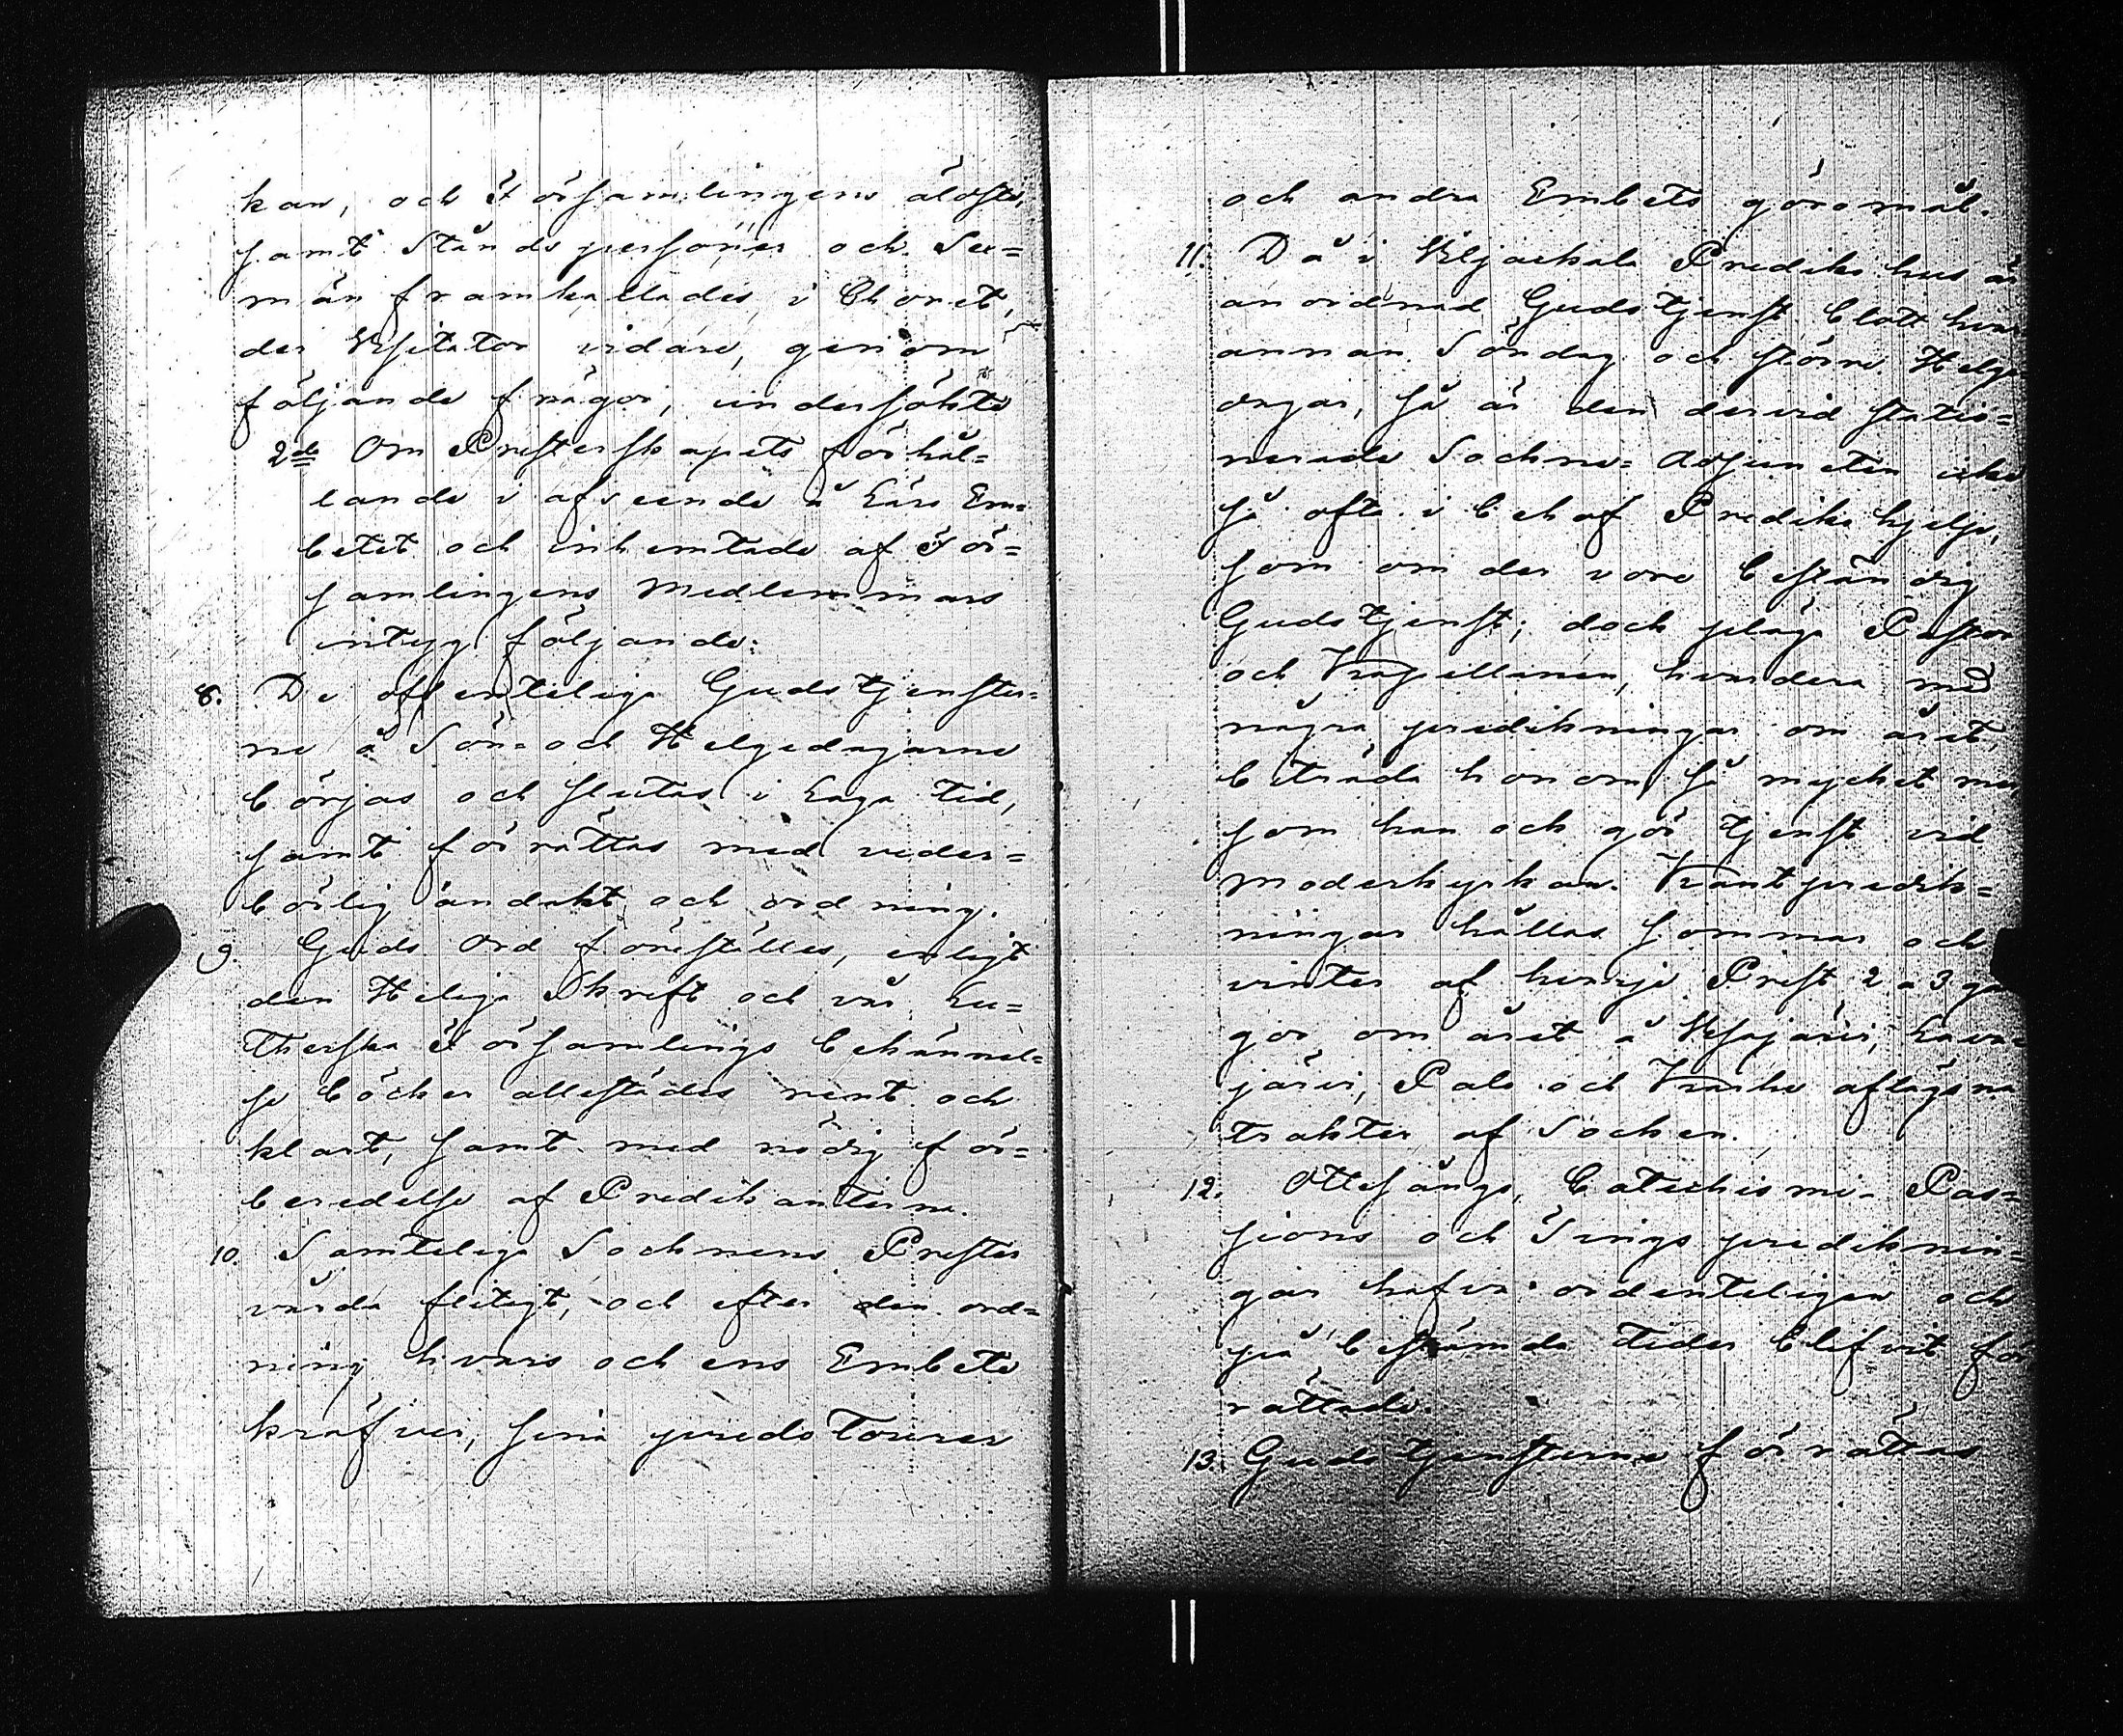 kan, och Församlingens äldste,
samt Ståndspersoner och Sex=
män framkallades i Choret,
der Visitator vidare, genom
följande frågor, undersökte
2do Om Presterskapets förhål=
lande i afseende å Läro Em=
betet och inhemtade af För=
samlingens Medlemmars
intyg följande:
8. De offenteliga Gudstjenster=
ne å Sön= och Helgedagarne
börjas och slutas i laga tid,
samt förrättas med veder=
börlig andakt och ordning.
9. Guds Ord föreställes, enligt
den Heliga Skrift och vår Lu=
therska Församlings bekännel=
se böcker allestädes rent och
klart, samt med nödig för=
beredelse af Predikanterna.
10. Samteliga Sochnens Prester
vårda flitigt, och efter den ord=
ning hvars och ens Embete
kräfver, sina predsTourer
och andra Embets göromål.
11. Då i Kljackala Predikohus är
anordnad Gudstjenst blott hvar
annan Söndag och större Helge
dagar, så är den dervid statio=
nerade Sochne= Adjuncten icke
så ofta i behof Predikohjelp,
som om der vore beständig
Gudstjenst; dock pläga Pastor
och Kapellanen, hvardera med
några predikningar om året,
biträda honom så mycket mer
som han och gör tjenst vid
Moderkyrkan. Kantpredik=
ningar hållas sommar och
vinter af hvarje Prest 2 a 3 gån
gor om året å Visajärvi, Lava
järvi, Palo och Karhe aflägsna
trakter af Socknen.
12. Ottesångs, Catechismi- Pas=
sions och Tings prediknin=
gar hafva ordenteligen och
på bestämda tider blifvit för
rättade.
13. Gudstjensterne förrättas